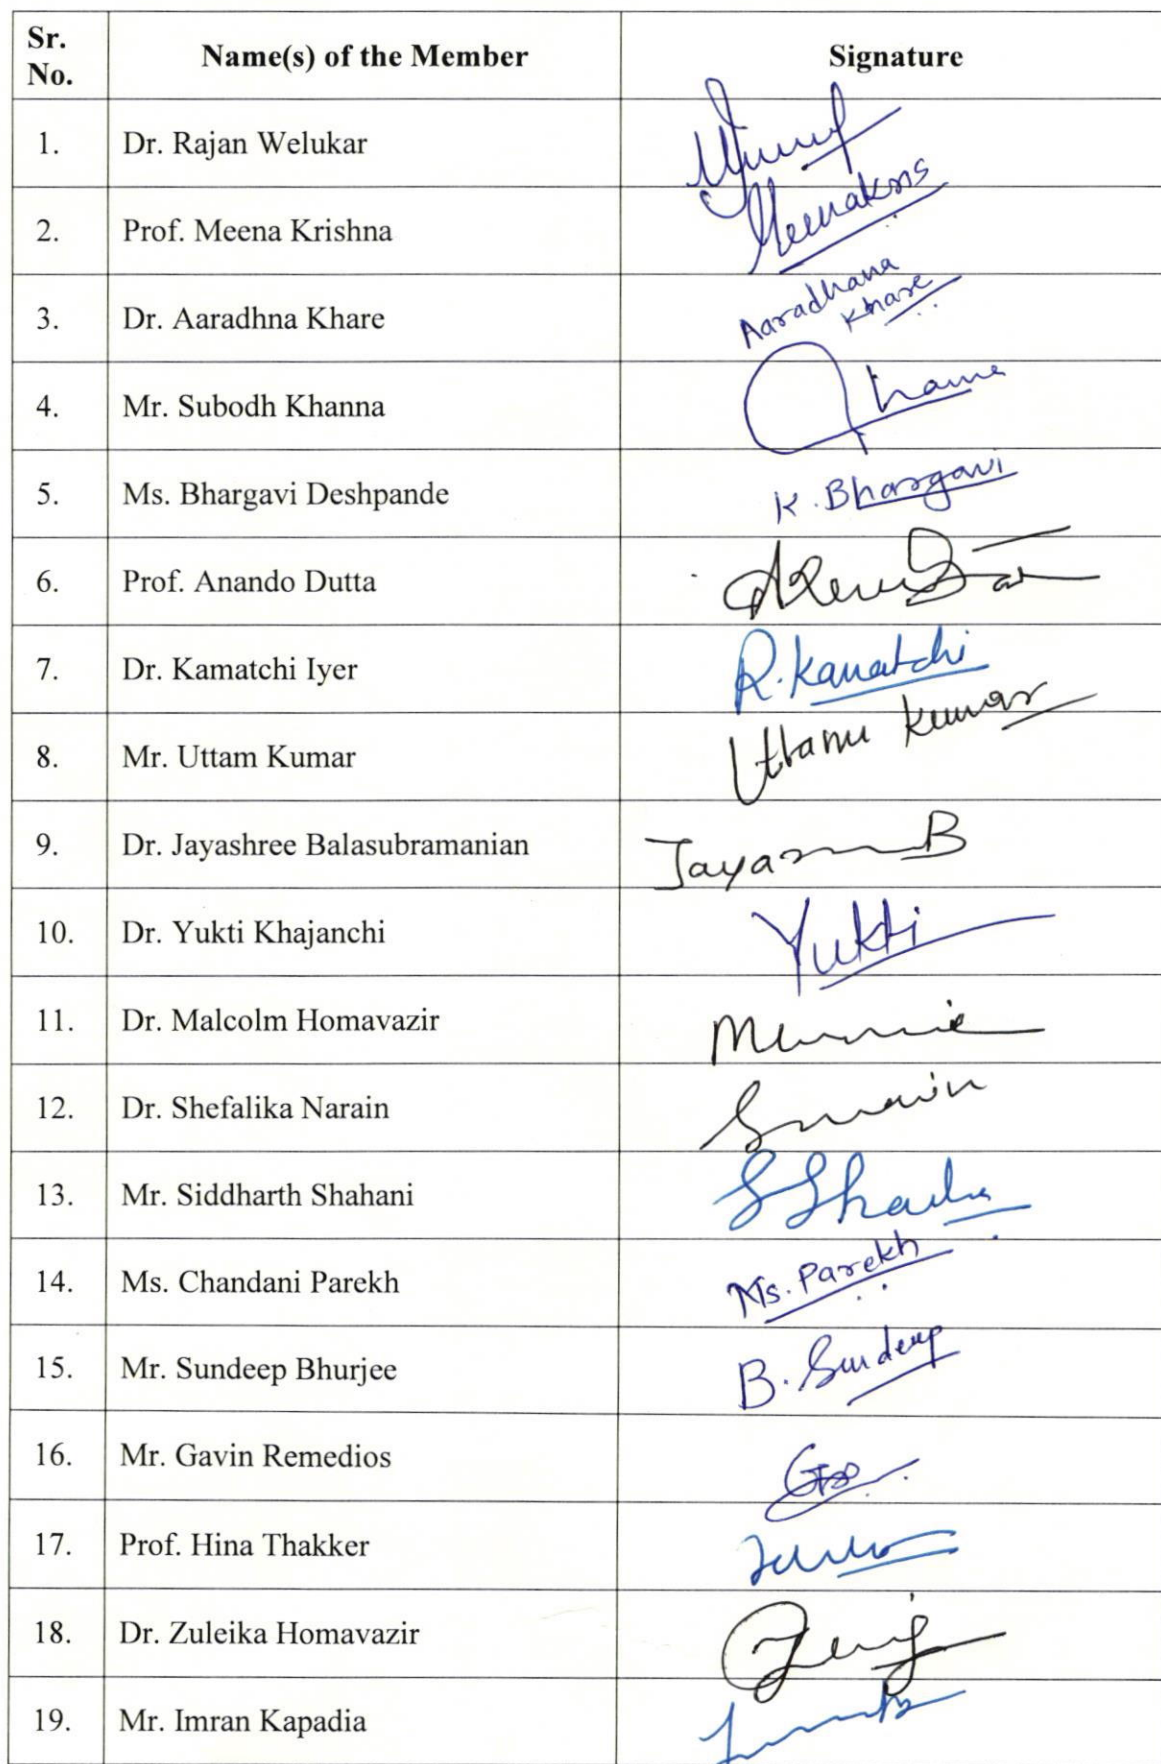 Sr. No. Name(s) of the Member Signature
1. Dr. Rajan Welukar
2. Prof. Meena Krishna Meenakns
3. Dr. Aaradhna Khare Aaradhana Khare
4. Mr. Subodh Khanna
5. Ms. Bhargavi Deshpande K. Bhargavi
6. Prof. Anando Dutta
7. Dr. Kamatchi Iyer R. Kamatchi
8. Mr. Uttam Kumar Uttam Kumar
9. Dr. Jayashree Balasubramanian
10. Dr. Yukti Khajanchi Yukti
11. Dr. Malcolm Homavazir
12. Dr. Shefalika Narain
13. Mr. Siddharth Shahani
14. Ms. Chandani Parekh Ms. Parekh
15. Mr. Sundeep Bhurjee B. Sundeep
16. Mr. Gavin Remedios
17. Prof. Hina Thakker
18. Dr. Zuleika Homavazir
19. Mr. Imran Kapadia